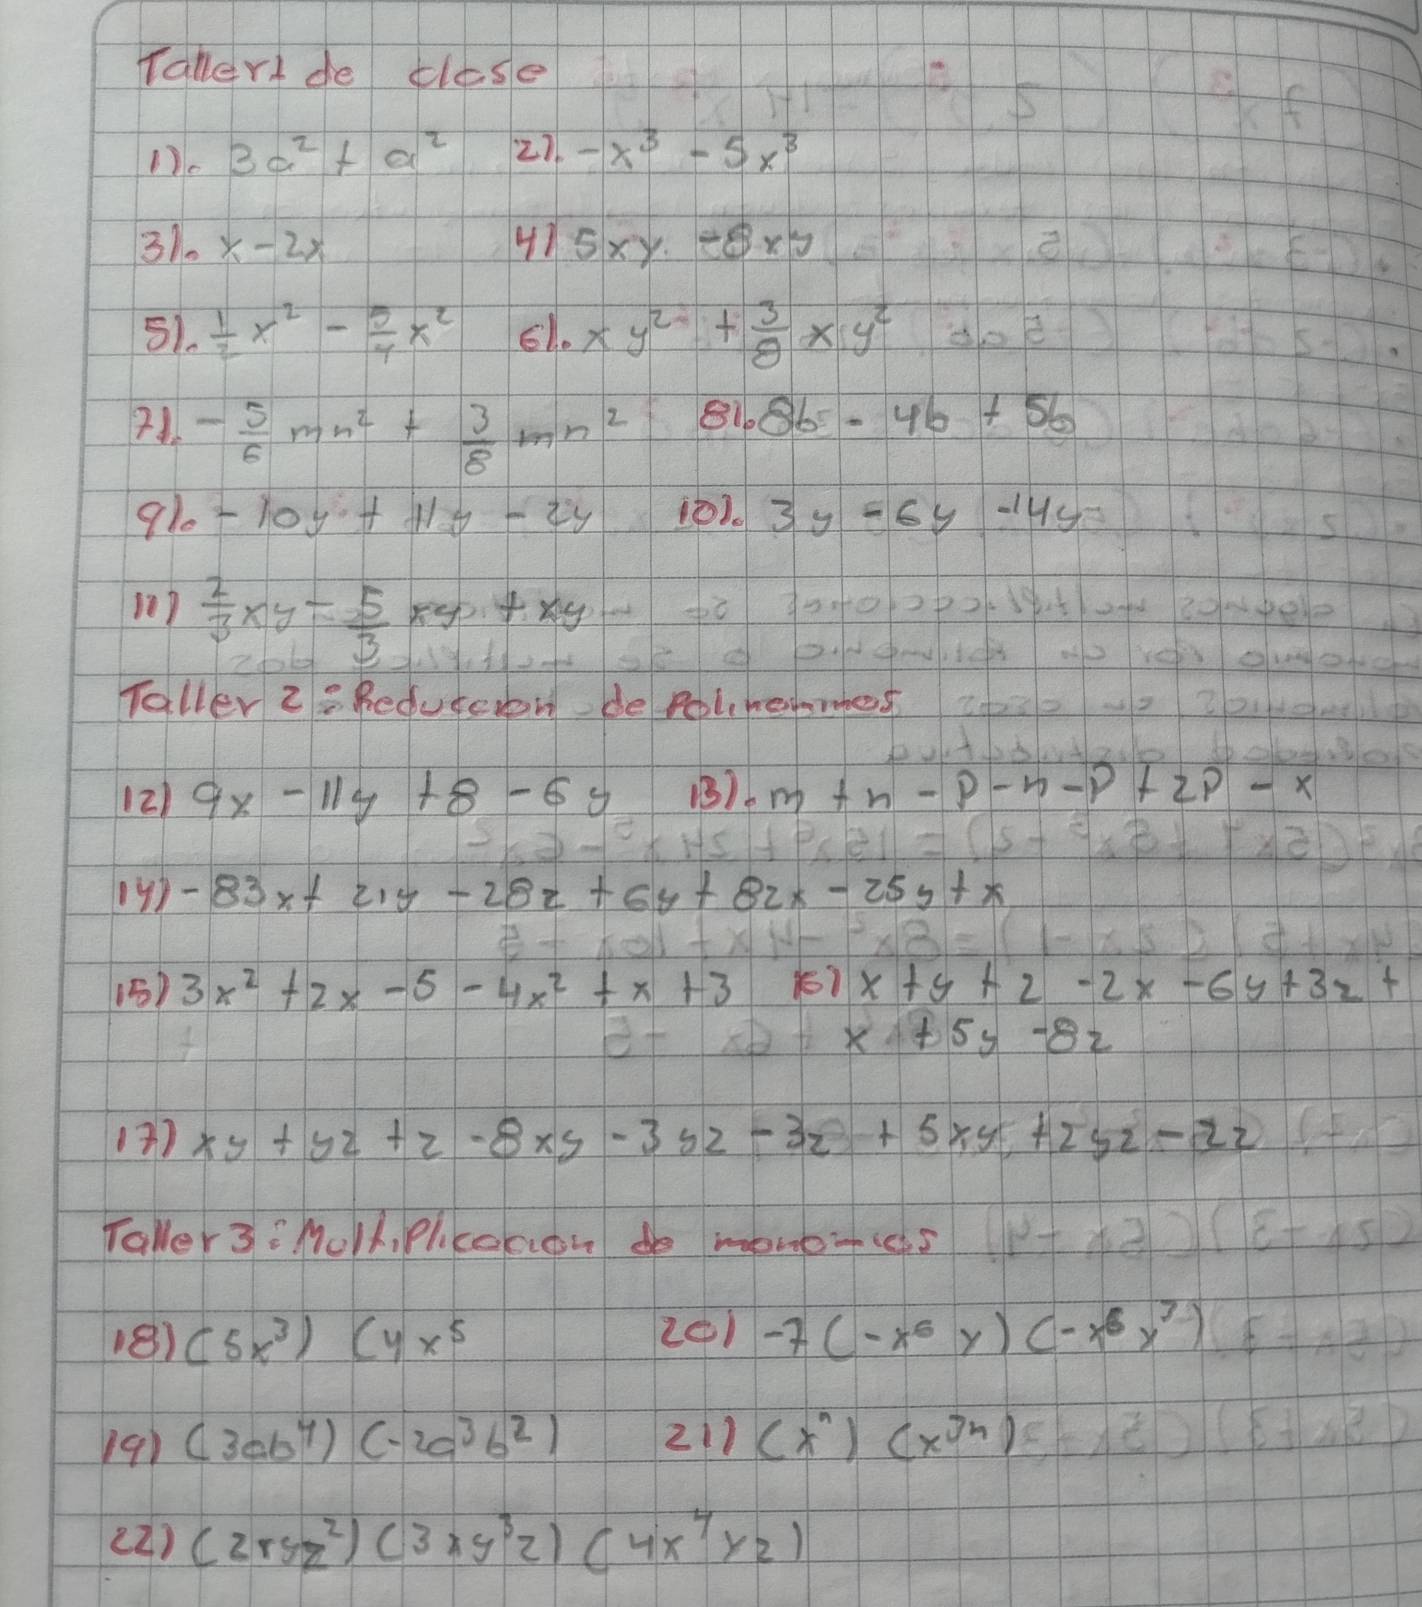 Taller 1 de clase
1). 3a² + a² 2). -x³ - 5x³
3). x - 2x 4) 5xy - 8xy
5). 1/2 x² - 5/4 x² 6). xy² + 3/8 xy²
7). - 5/6 mn² + 3/8 mn² 8). 8b - 4b + 5b
9). -10y + 11y - 2y 10). 3y - 6y - 14y
11) 2/3 xy - 5/3 xy + xy
Taller 2: Reduccion de Polinommos
12) 9x - 11y + 8 - 6y 13). m + n - p - n - p + 2p - x
14) -83x + 21y - 28z + 6y + 82x - 25y + x
15) 3x² + 2x - 5 - 4x² + x + 3 16) x + y + z - 2x - 6y + 3z +
x + 5y - 8z
17) xy + yz + z - 8xy - 3yz - 3z + 5xy + 2yz - 2z
Taller 3: Multiplicacion de monomios
18) (5x³) (4x⁵ 20) -7 (-x⁶ y) (-x⁶ y³)
19) (3ab⁴) (-2a³b²) 21) (xⁿ) (x³ⁿ)
22) (2xyz²) (3xy³z) (4x⁴yz)